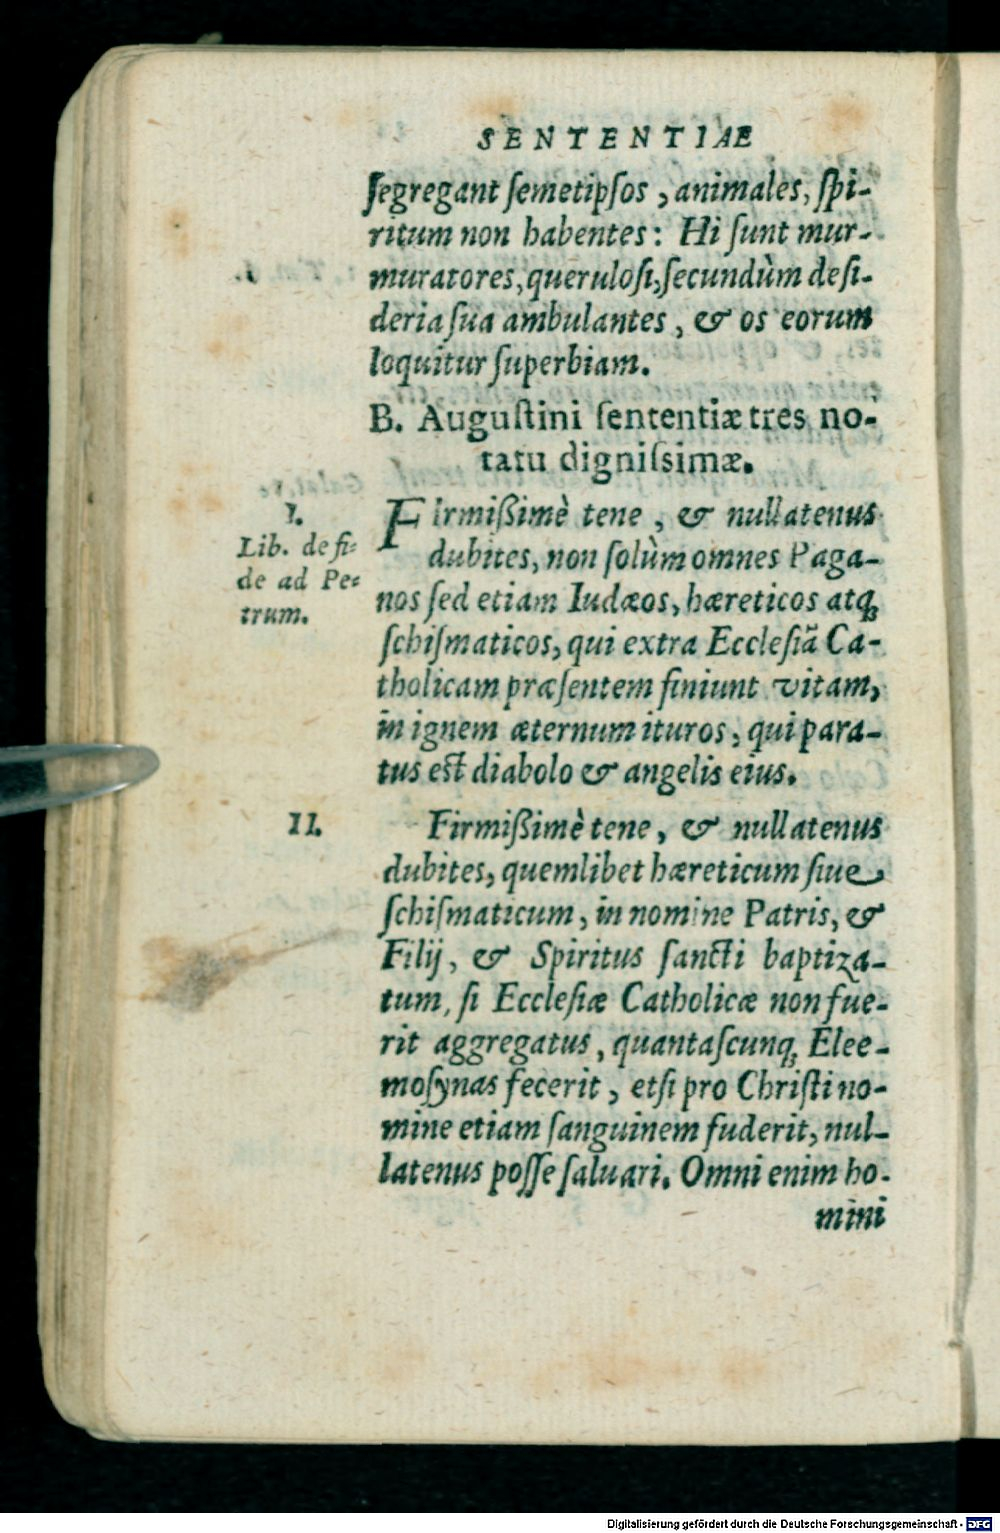 SENTENTIAE
ſegregant ſemetipſos, animales, ſpi-
ritum non habentes: Hi ſunt mur-
muratores, queruloſi, ſecundùm deſi-
deria ſua ambulantes, & os eorum
loquitur ſuperbiam.
B. Auguſtini ſententiæ tres no-
tatu digniſsimæ.
I.
Lib. de fi-
de ad Pe-
trum.
Firmißimè tene, & nullatenus
dubites, non ſolùm omnes Paga-
nos ſed etiam Iudæos, hæreticos atq;
ſchiſmaticos, qui extra Eccleſiã Ca-
tholicam præſentem finiunt vitam,
in ignem æternum ituros, qui para-
tus eſt diabolo & angelis eius.
II.
Firmißimè tene, & nullatenus
dubites, quemlibet hæreticum ſiue
ſchiſmaticum, in nomine Patris, &
Filij, & Spiritus ſancti baptiza-
tum, ſi Eccleſiæ Catholicæ non fue-
rit aggregatus, quantaſcunq; Elee-
moſynas fecerit, etſi pro Chriſti no-
mine etiam ſanguinem fuderit, nul-
latenus poſſe ſaluari. Omni enim ho-
mini
Digitalisierung gefördert durch die Deutsche Forschungsgemeinschaft - DFG